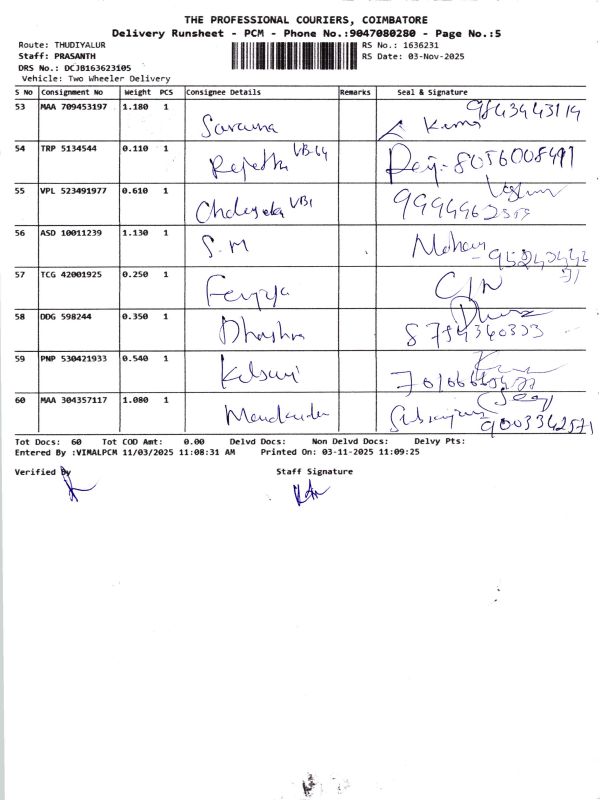 THE PROFESSIONAL COURIERS, COIMBATORE
Delivery Runsheet - PCM - Phone No.:9047080280 - Page No.:5
Route: THUDIYALUR RS No.: 1636231
Staff: PRASANTH RS Date: 03-Nov-2025
DRS No.: DCJB163623105
Vehicle: Two Wheeler Delivery
S No Consignment No Weight PCS Consignee Details Remarks Seal & Signature
53 MAA 709453197 1.180 1 Saravana Kumar 9843443114
54 TRP 5134544 0.110 1 VB-64 8056008491
55 VPL 523491977 0.610 1 VB1
56 ASD 10011239 1.130 1 S.M Mohan
57 TCG 42001925 0.250 1
58 DDG 598244 0.350 1
59 PNP 530421933 0.540 1
60 MAA 304357117 1.080 1 9003342571
Tot Docs: 60 Tot COD Amt: 0.00 Delvd Docs: Non Delvd Docs: Delvy Pts:
Entered By :VIMALPCM 11/03/2025 11:08:31 AM Printed On: 03-11-2025 11:09:25
Verified By Staff Signature